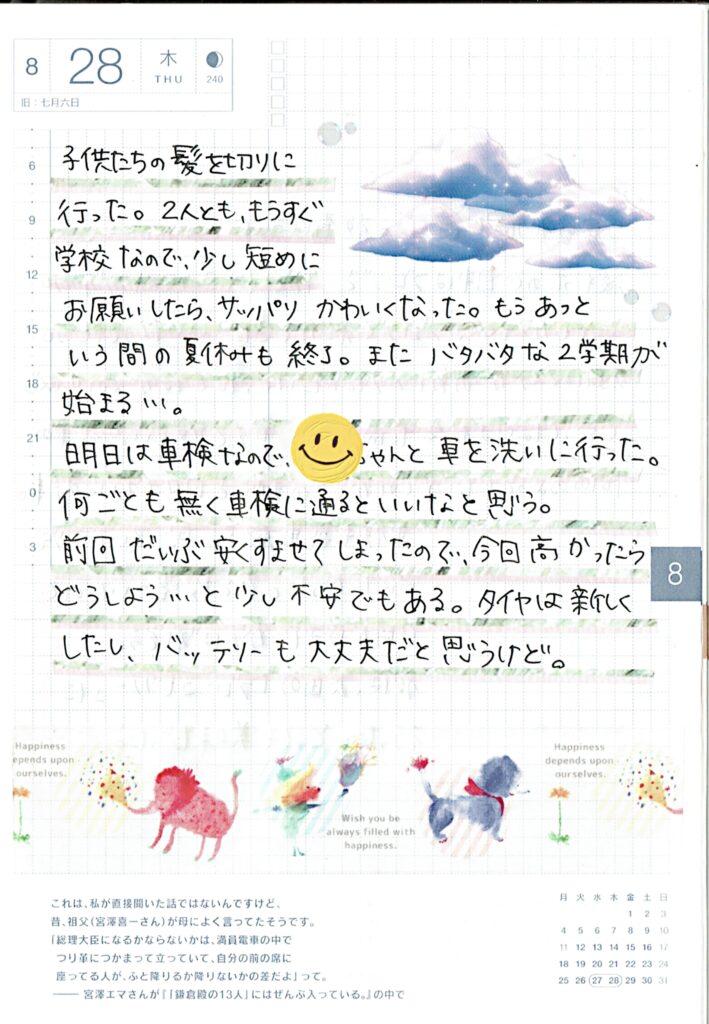 8
28
木
THU
240
旧：七月六日
6
9
12
15
18
21
0
3
子供たちの髪を切りに
行った。2人とも、もうすぐ
学校なので、少し短めに
お願いしたら、サッパリ かわいくなった。もう あっと
いう間の夏休みも 終了。また バタバタな 2学期が
始まる…。
明日は車検なので、 ちゃんと 車を洗いに行った。
何ごとも無く車検に通るといいなと思う。
前回 だいぶ安くすませてしまったので、今回高かったら
どうしよう…と 少し不安でもある。タイヤは新しく
したし、バッテリーも大丈夫だと思うけど。
8
Happiness
depends upon
ourselves.
Wish you be
always filled with
happiness.
Happiness
depends upon
ourselves.
これは、私が直接聞いた話ではないんですけど、
昔、祖父（宮澤喜一さん）が母によく言ってたそうです。
「総理大臣になるかならないかは、満員電車の中で
つり革につかまって立っていて、自分の前の席に
座ってる人が、ふと降りるか降りないかの差だよ」って。
―― 宮澤エマさんが『「鎌倉殿の13人」にはぜんぶ入っている。』の中で
月 火 水 木 金 土 日
1 2 3
4 5 6 7 8 9 10
11 12 13 14 15 16 17
18 19 20 21 22 23 24
25 26 27 28 29 30 31